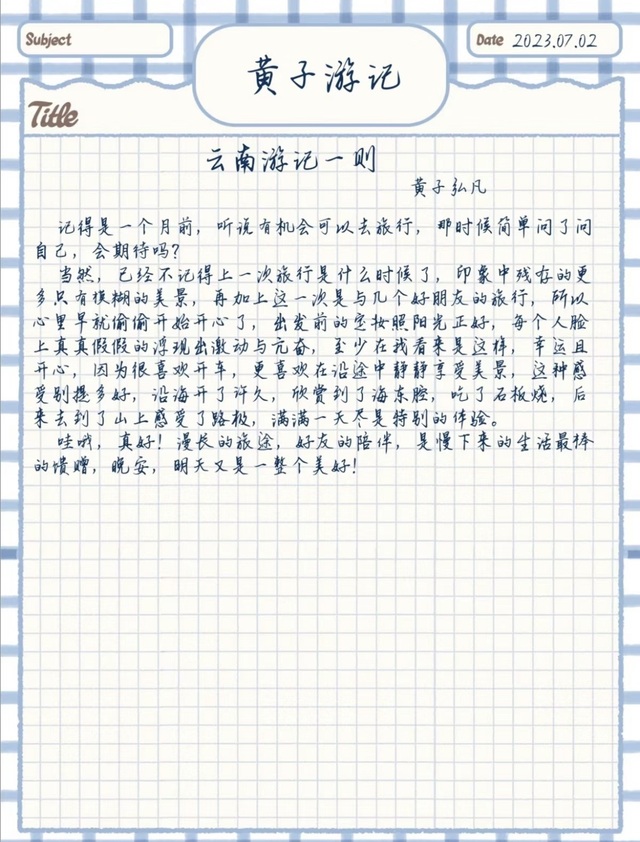 Subject
黄子游记
Date 2023.07.02
Title
云南游记一则
黄子弘凡
记得是一个月前，听说有机会可以去旅行，那时候简单问了问
自己，会期待吗？
当然，已经不记得上一次旅行是什么时候了，印象中残存的更
多只有模糊的美景，再加上这一次是与几个好朋友的旅行，所以
心里早就偷偷开始开心了，出发前的定妆照阳光正好，每个人脸
上真真假假的浮现出激动与亢奋，至少在我看来是这样，幸运且
开心，因为很喜欢开车，更喜欢在沿途中静静享受美景，这种感
受别提多好，沿海开了许久，欣赏到了海东腔，吃了石板烧，后
来去到了山上感受了路极，满满一天尽是特别的体验。
哇哦，真好！漫长的旅途，好友的陪伴，是慢下来的生活最棒
的馈赠，晚安，明天又是一整个美好！